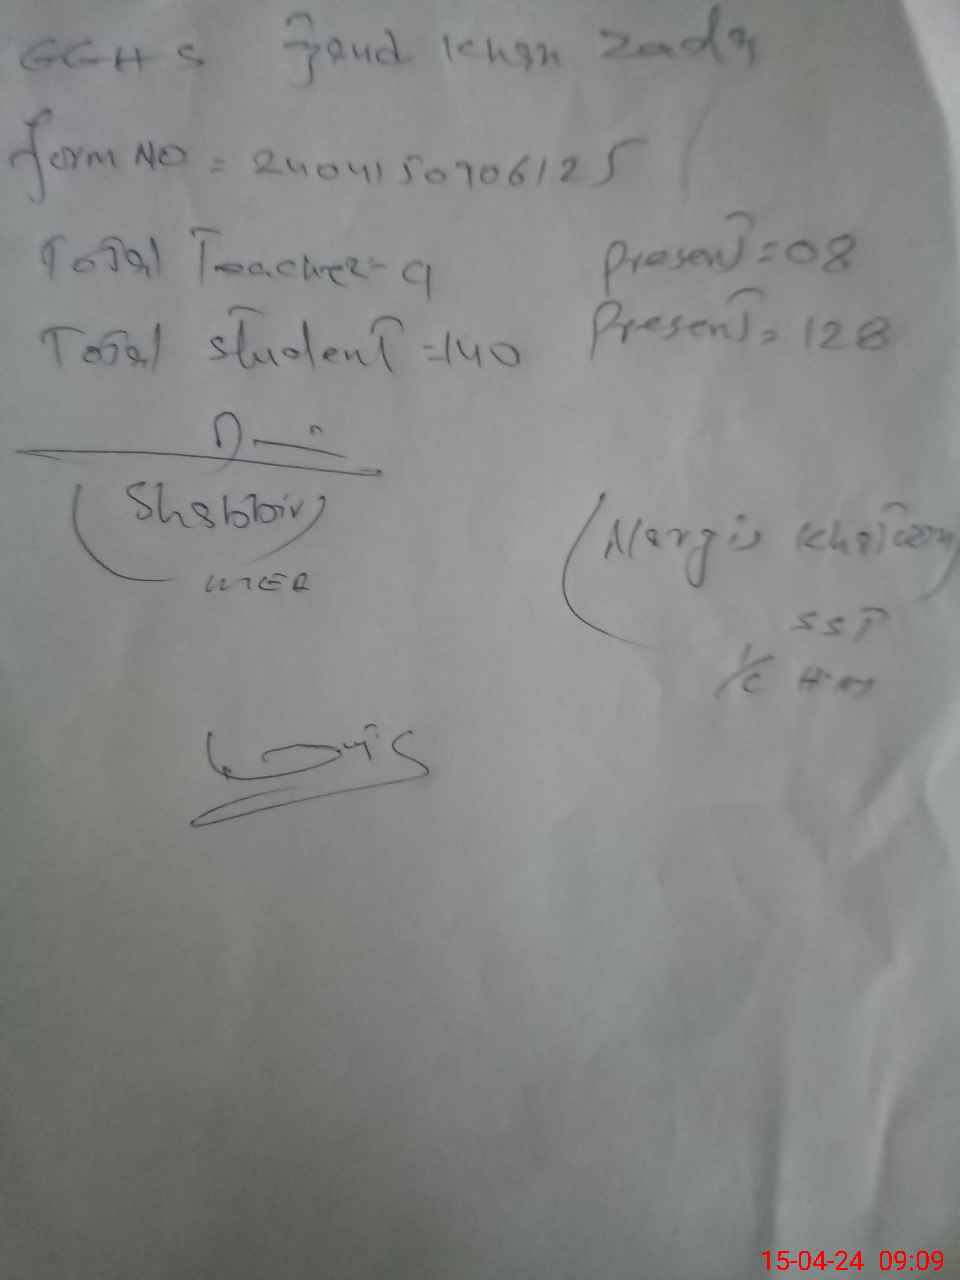 GGHS Jand Khan Zada
form NO = 2404150906125
Total Teacher = 9 Present = 08
Total student = 140 Present = 128
(Shabbir)
MEA
(Nargis Khatoon)
SST
I/C HM
15-04-24 09:09